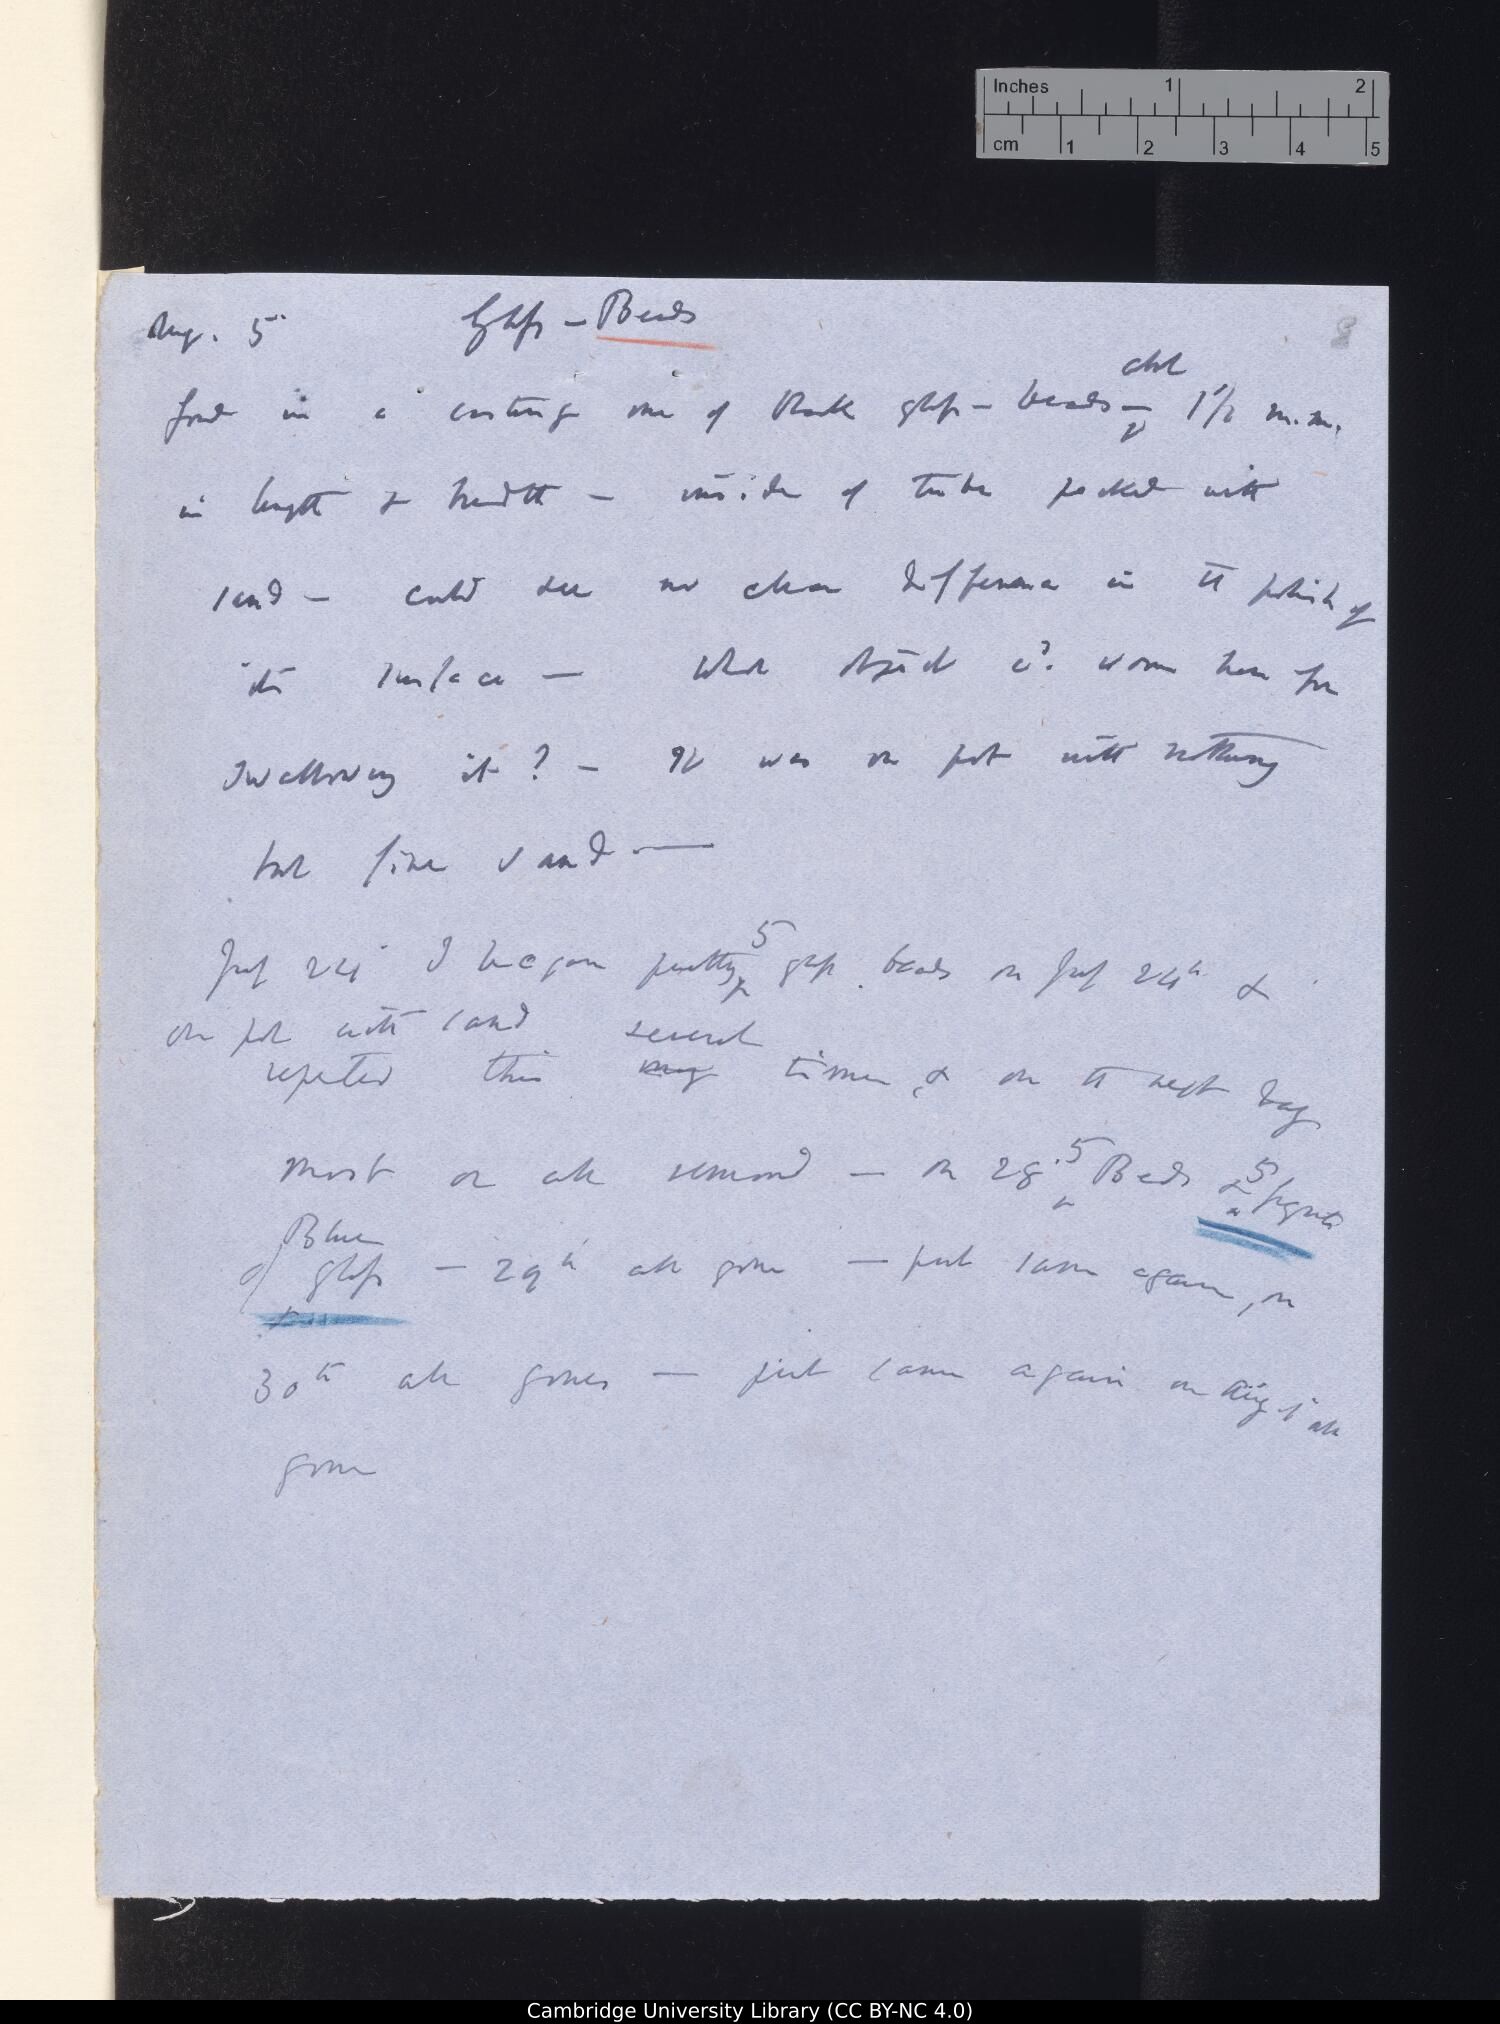 Inches 1 2
cm 1 2 3 4 5
8
Aug. 5 Glass-Beads
found in a casting one of black glass-beads – abt 1 1/2 m.m.
in length & breadth – inside of tube packed with
sand – could see no clear difference in the polish of
its surface – What object cd. worm have for
swallowing it? – It was on pot with nothing
but fine sand —
July 24 I began putting 5 glass beads on July 24th &
on pot with sand several
repeated this many times, & on the next day
most or all removed — on 28. 5 Beads & 5 fragmts
of Blue glass — 29th all gone — put same again, on
30th all gone — put same again on Aug 1 all
gone
Cambridge University Library (CC BY-NC 4.0)